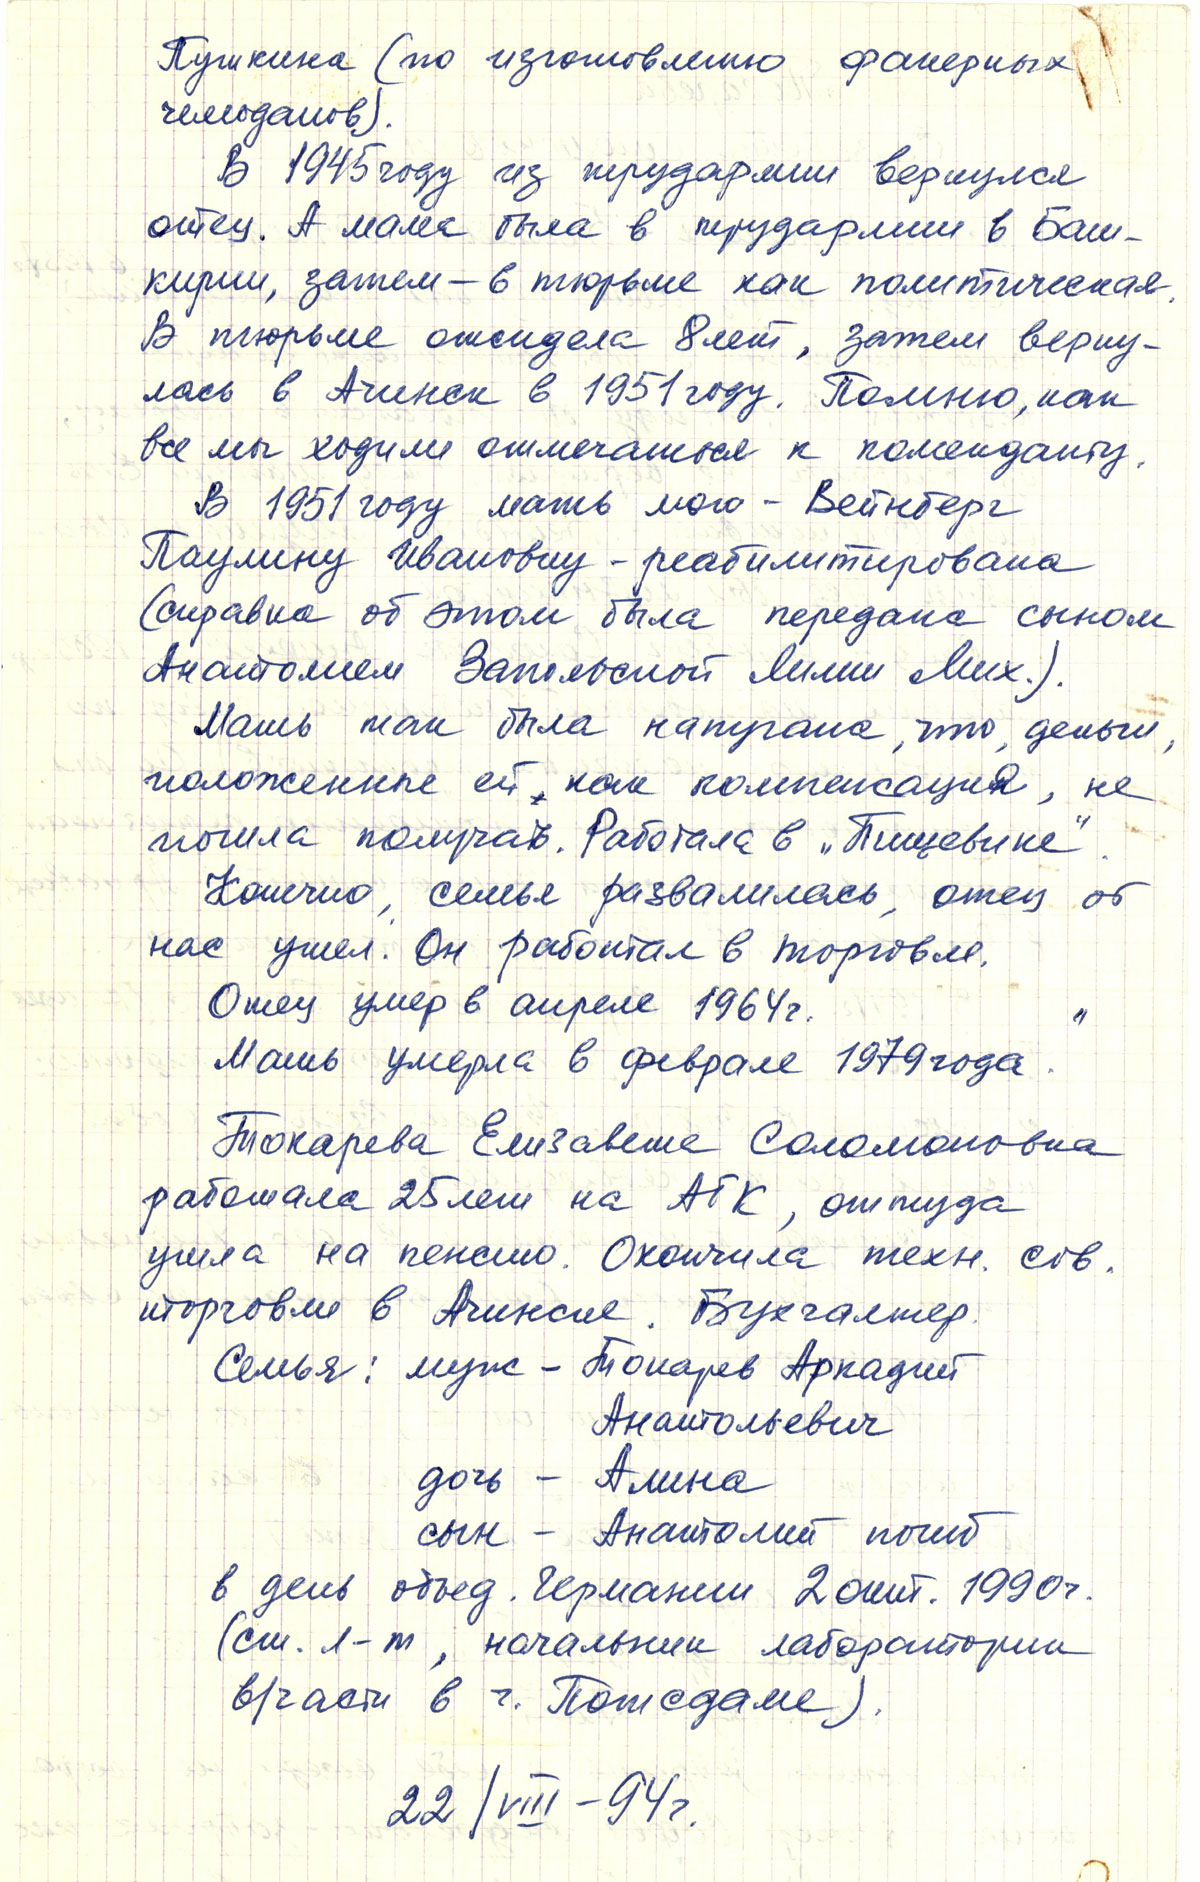 Пушкина (по изготовлению фанерных
чемоданов).
В 1945 году из трудармии вернулся
отец. А мама была в трудармии в Баш-
кирии, затем – в тюрьме как политическая.
В тюрьме отсидела 8 лет, затем верну-
лась в Ачинск в 1951 году. Помню, как
все мы ходили отмечаться к коменданту.
В 1951 году мать мою – Вейнберг
Паулину Ивановну – реабилитирована
(справка об этом была передана сыном
Анатолием Запольской Лилии Мих.).
Мать так была напугана, что, деньги,
положенные ей, как компенсация, не
пошла получать. Работала в „Пищевике".
Конечно, семья развалилась, отец от
нас ушел. Он работал в торговле.
Отец умер в апреле 1964 г. "
Мать умерла в феврале 1979 года.
Токарева Елизавета Соломоновна
работала 25 лет на АГК, откуда
ушла на пенсию. Окончила техн. сов.
торговли в Ачинске. Бухгалтер.
Семья: муж – Токарев Аркадий
Анатольевич
дочь – Алина
сын – Анатолий погиб
в день объед. Германии 2 окт. 1990 г.
(ст. л-т, начальник лаборатории
в/части в г. Потсдаме).
22/VIII – 94 г.